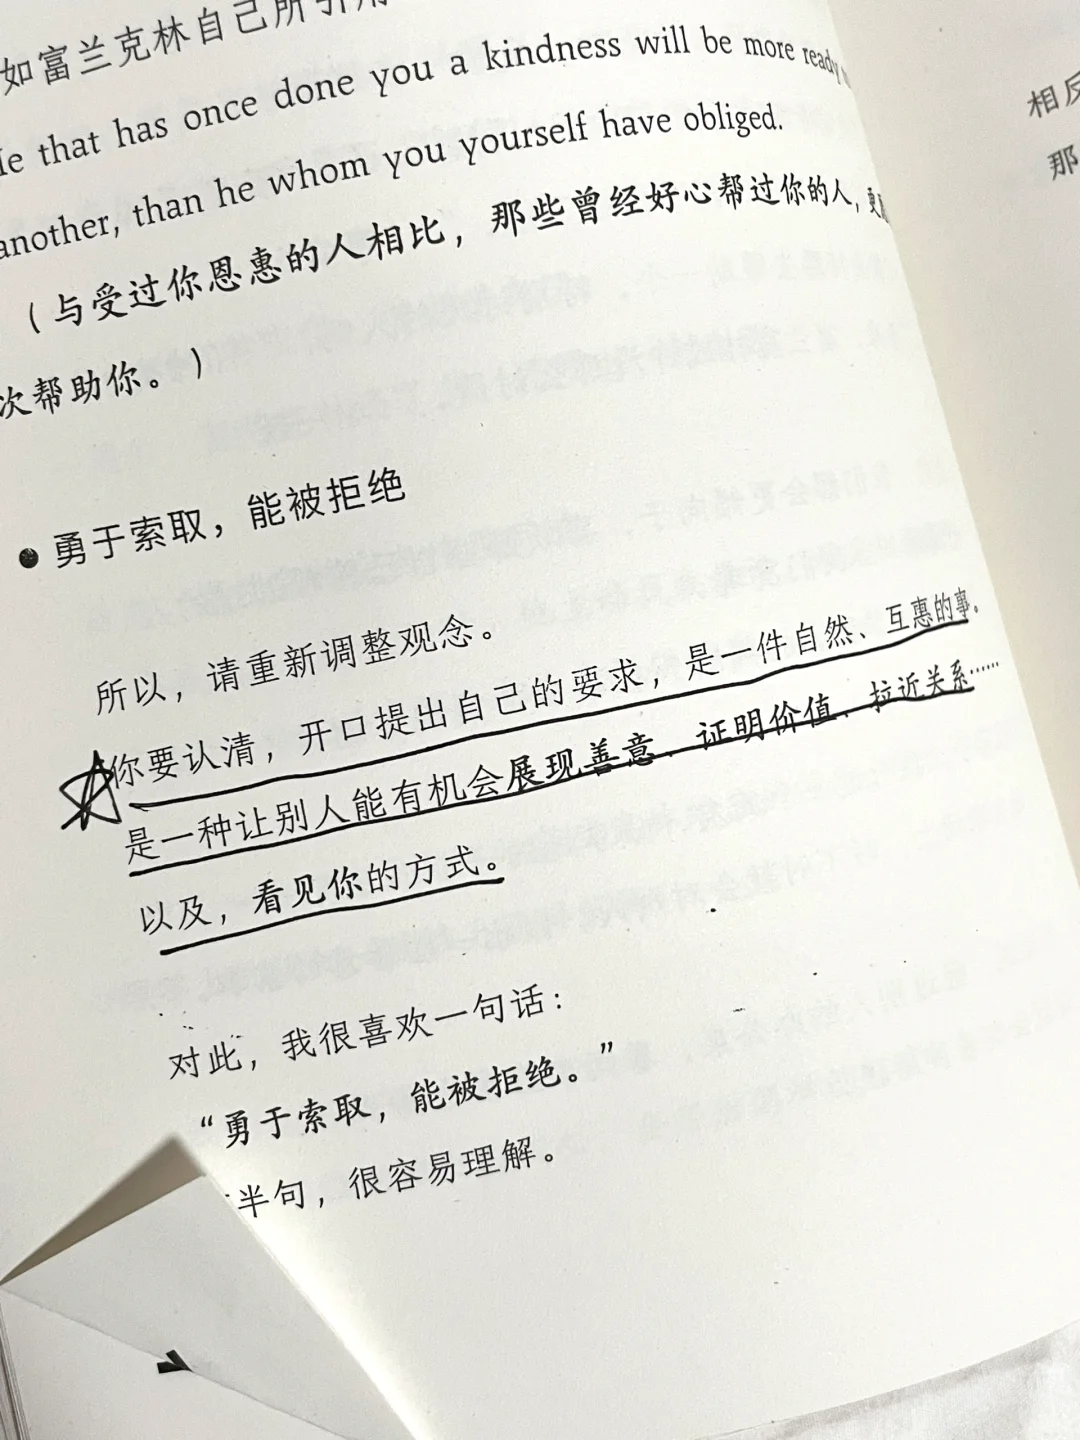 如富兰克林自己所引用
He that has once done you a kindness will be more ready
another, than he whom you yourself have obliged.
（与受过你恩惠的人相比，那些曾经好心帮过你的人，更
次帮助你。）
● 勇于索取，能被拒绝
所以，请重新调整观念。
你要认清，开口提出自己的要求，是一件自然、互惠的事。
是一种让别人能有机会展现善意、证明价值、拉近关系……
以及，看见你的方式。
对此，我很喜欢一句话：
“勇于索取，能被拒绝。”
半句，很容易理解。
相反
那